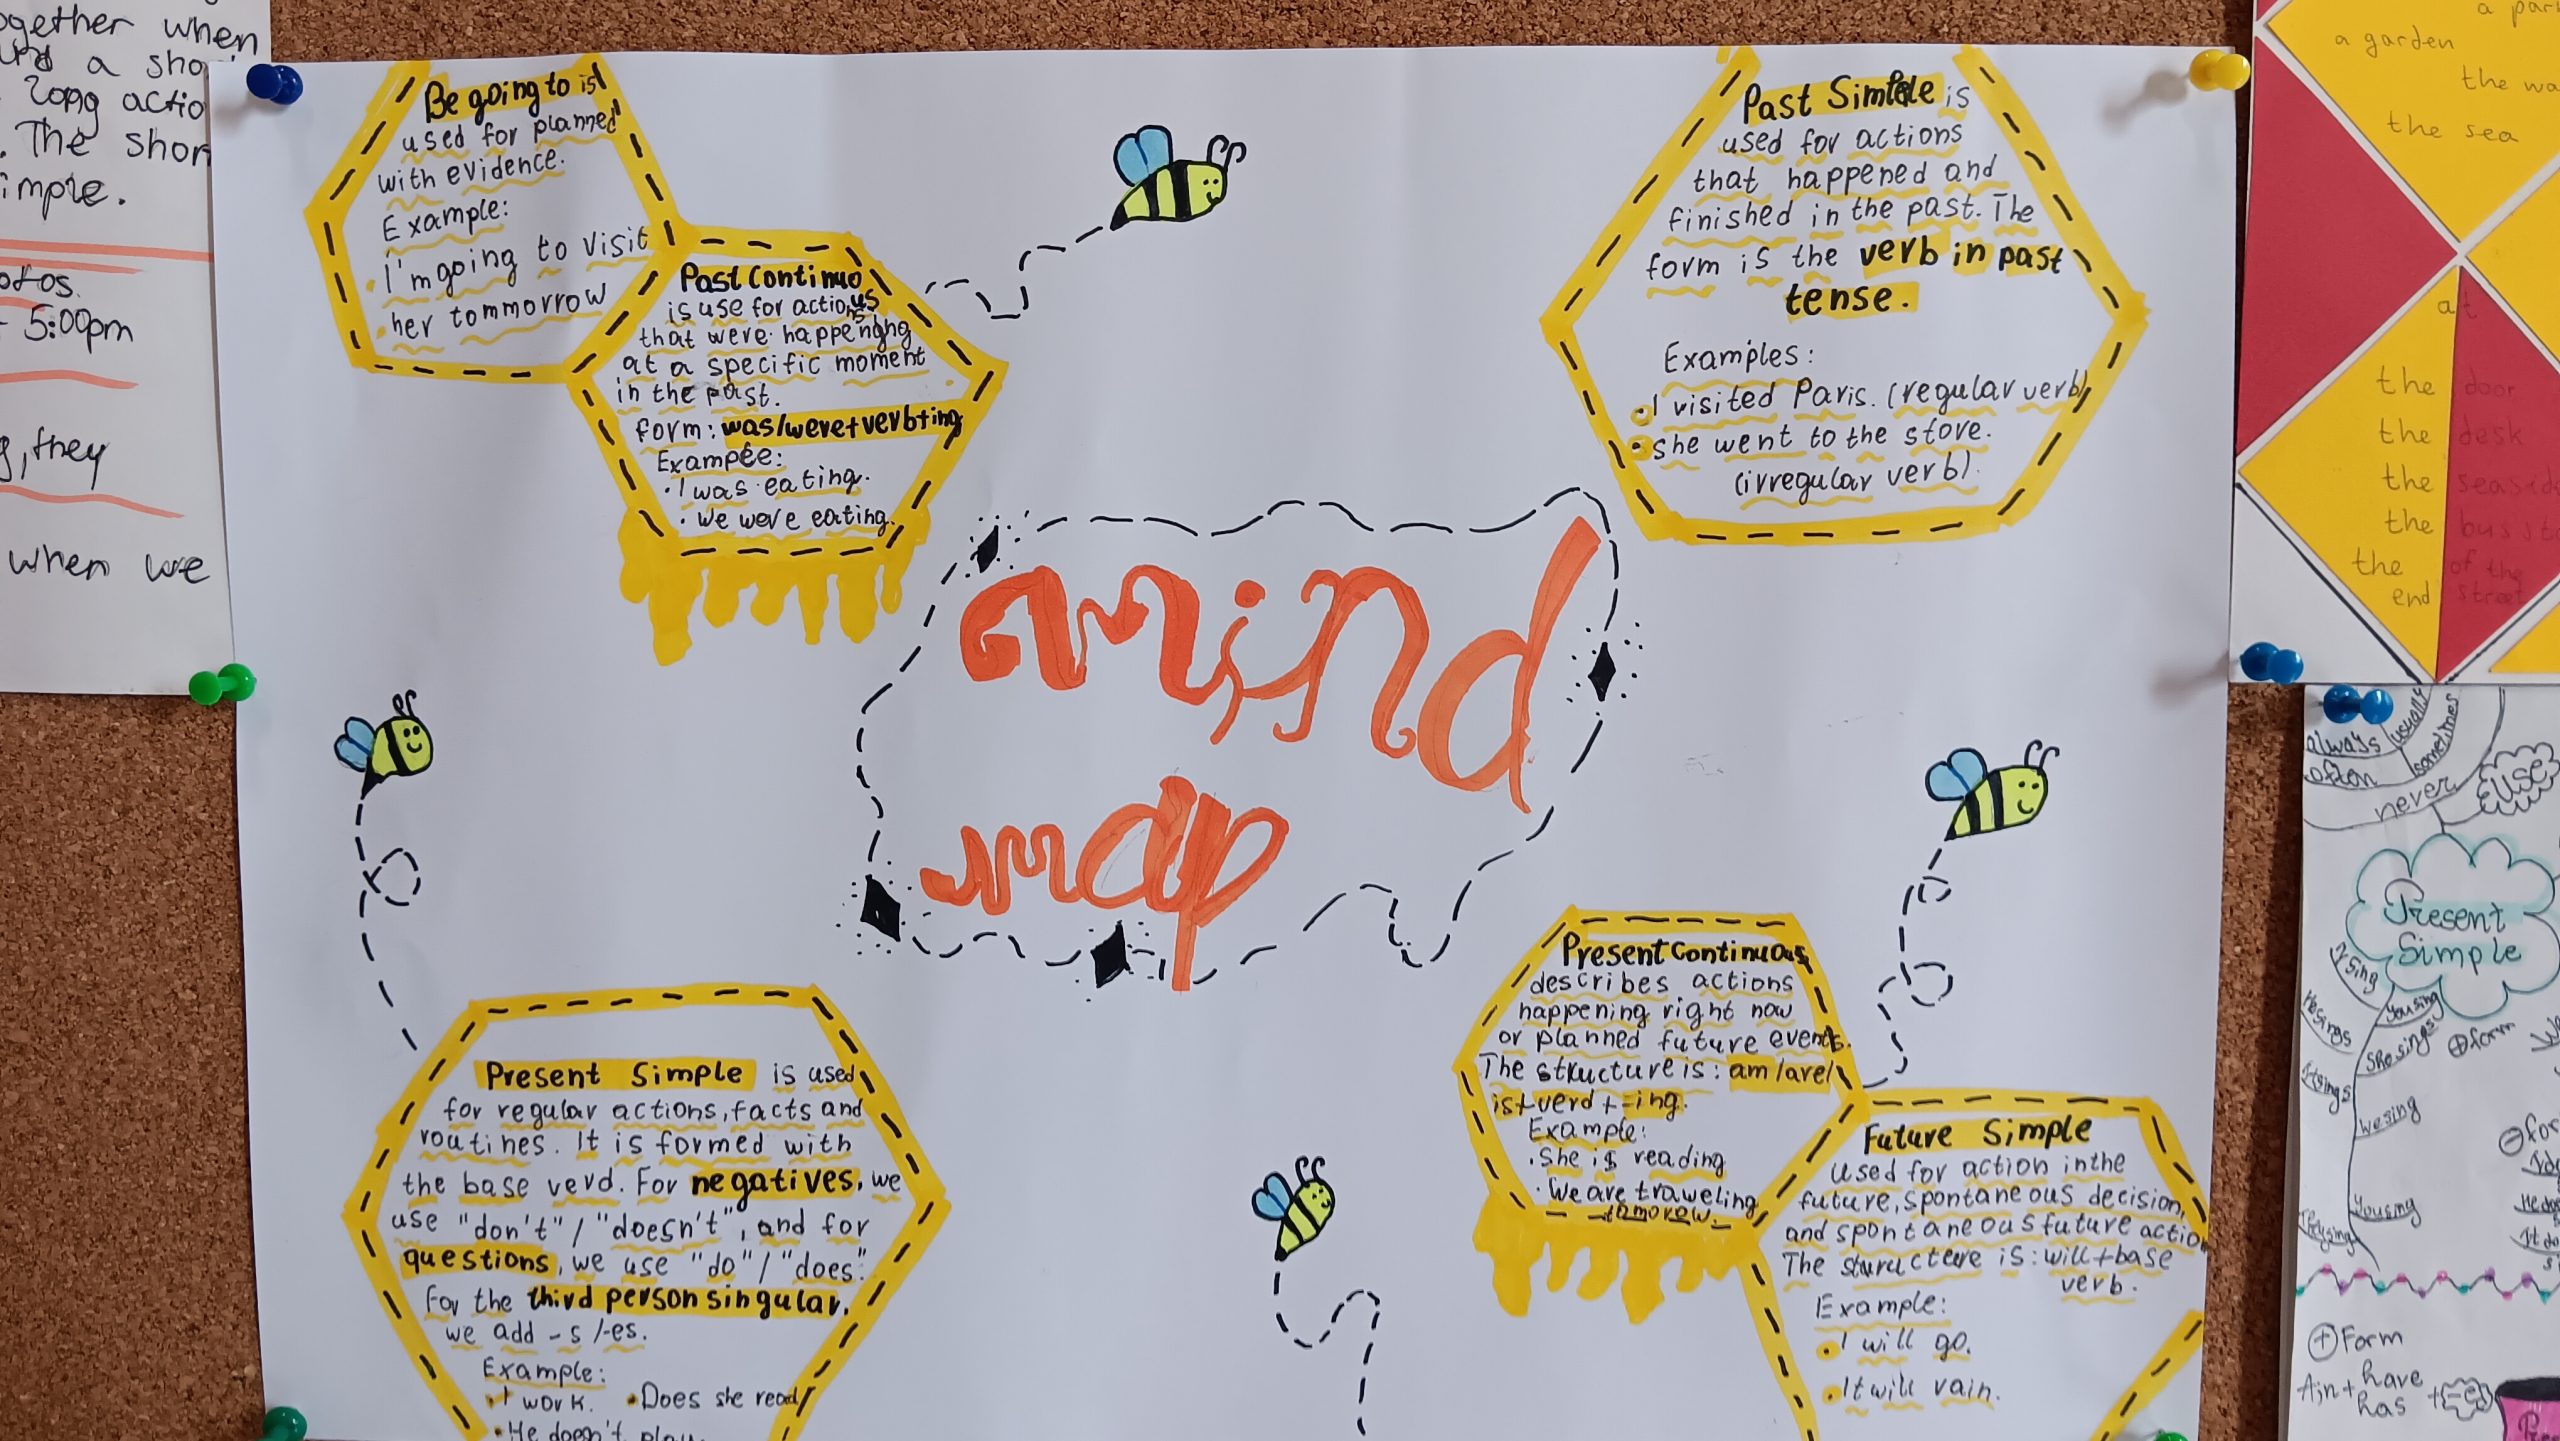 ogether when
a sho
long actio
. The shor
imple.
otos.
5:00pm
g, they
when we
Be going to is
used for planned
with evidence.
Example:
I'm going to visit
her tommorrow
Past Continuous
is use for actions
that were happening
at a specific moment
in the past.
form: was/were+verb+ing
Example:
• I was eating.
• We were eating.
Past Simple is
used for actions
that happened and
finished in the past. The
form is the verb in past
tense.
Examples:
• I visited Paris. (regular verb)
• she went to the store.
(irregular verb)
mind
map
Present Simple is used
for regular actions, facts and
routines. It is formed with
the base verd. For negatives, we
use "don't" / "doesn't", and for
questions, we use "do" / "does".
For the third person singular,
we add -s /-es.
Example:
• I work. • Does she read
• He doesn't play
Present Continuous
describes actions
happening right now
or planned future events.
The structure is: am/are/
is+verd+-ing.
Example:
• She is reading
• We are traweling
tomorow.
Future Simple
used for action in the
future, spontaneous decision,
and spontaneous future action
The structere is: will+base
verb.
Example:
• I will go.
• It will rain.
a par
a garden
the wa
the sea
at
the door
the desk
the seasid
the bus sto
the of the
end street
always
usually
sometimes
often
never
use
Present
Simple
Ising
Yousing
Hesings
Shesings
Itsings
Wesing
Yousing
Theysing
+ form
- for
+ Form
have
has